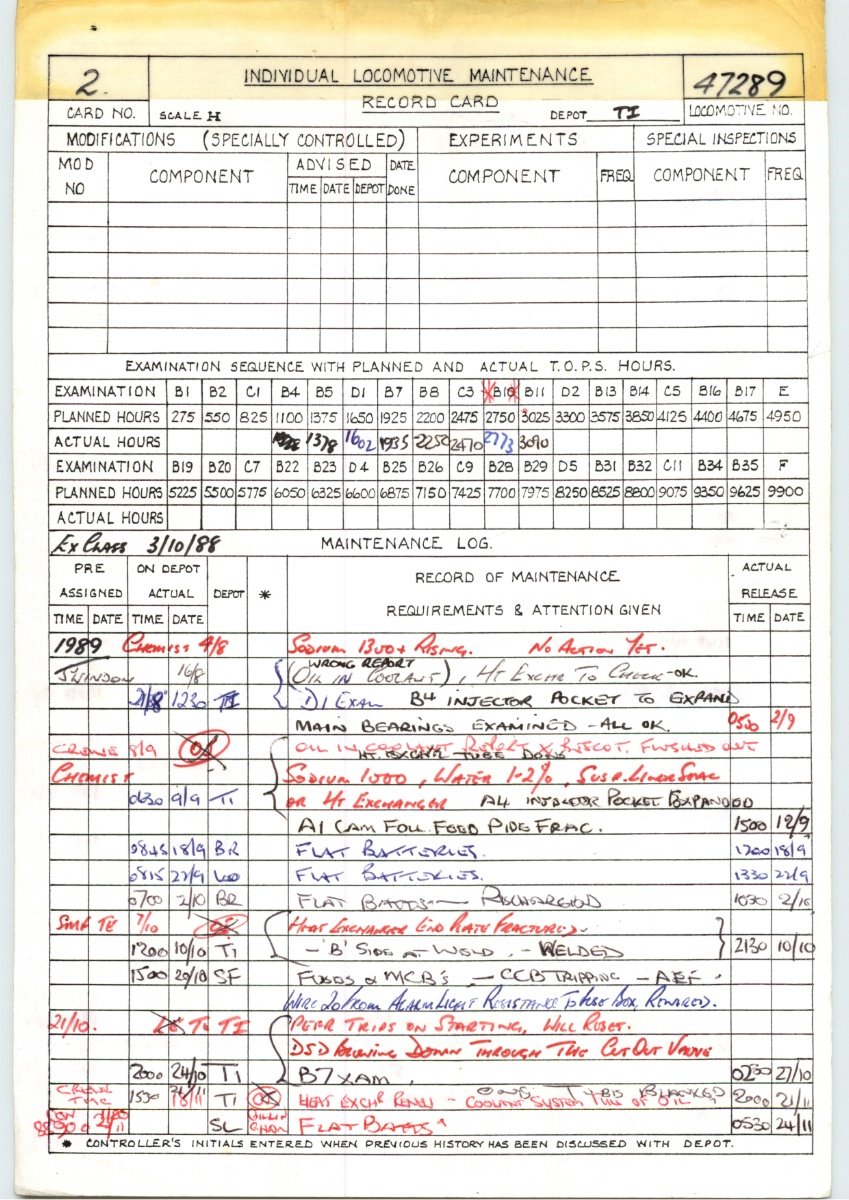 2. INDIVIDUAL LOCOMOTIVE MAINTENANCE 47289
CARD NO. SCALE H RECORD CARD DEPOT TI LOCOMOTIVE NO.
MODIFICATIONS (SPECIALLY CONTROLLED) EXPERIMENTS SPECIAL INSPECTIONS
MOD NO COMPONENT ADVISED DATE DONE COMPONENT FREQ COMPONENT FREQ
TIME DATE DEPOT
EXAMINATION SEQUENCE WITH PLANNED AND ACTUAL T.O.P.S. HOURS.
EXAMINATION B1 B2 C1 B4 B5 D1 B7 B8 C3 B10 B11 D2 B13 B14 C5 B16 B17 E
PLANNED HOURS 275 550 825 1100 1375 1650 1925 2200 2475 2750 3025 3300 3575 3850 4125 4400 4675 4950
ACTUAL HOURS 1378 1602 1935 2250 2470 2773 3090
EXAMINATION B19 B20 C7 B22 B23 D4 B25 B26 C9 B28 B29 D5 B31 B32 C11 B34 B35 F
PLANNED HOURS 5225 5500 5775 6050 6325 6600 6875 7150 7425 7700 7975 8250 8525 8800 9075 9350 9625 9900
ACTUAL HOURS
EX CLASS 3/10/88 MAINTENANCE LOG.
PRE ASSIGNED ON DEPOT ACTUAL DEPOT * RECORD OF MAINTENANCE REQUIREMENTS & ATTENTION GIVEN ACTUAL RELEASE
TIME DATE TIME DATE TIME DATE
1989 CHEMIST 4/8 SODIUM 1300+ RISING. NO ACTION YET.
WRONG REPORT
SWINDON 16/8 (OIL IN COOLANT), HT EXCHR TO CHECK-OK.
21/8 1230 TI D1 EXAM B4 INJECTOR POCKET TO EXPAND
MAIN BEARINGS EXAMINED - ALL OK. 0500 2/9
CREWE 8/9 OIL IN COOLANT REPORT X FLUSHED OUT
HT. EXCHR TUBE DONE
CHEMIST SODIUM 1000, WATER 1-2%, SUSP. LINER SEAL
0630 9/9 TI OR HT EXCHANGER A4 INJECTOR POCKET EXPANDED
A1 CAM FOLL. FEED PIPE FRAC. 1500 12/9
0845 18/9 BR FLAT BATTERIES. 1200 18/9
0815 22/9 FLAT BATTERIES. 1330 22/9
0700 2/10 BR FLAT BATTS RECHARGED 1030 2/10
SMF TE 7/10 HEAT EXCHANGER END PLATE FRACTURED.
1200 10/10 TI - 'B' SIDE AT WELD. - WELDED 2130 10/10
1500 20/10 SF FUSES & MCB'S, - CCB TRIPPING - AEF.
WIRE 20 FROM ALARM LIGHT RESISTANCE TO FUSE BOX, RENEWED.
21/10. TO TI PEPR TRIPS ON STARTING, WILL RESET.
DSD BLOWING DOWN THROUGH THE CUT OUT VALVE
2000 24/10 TI B7 XAM. 0230 27/10
1530 TI HEAT EXCHR RENEW - COOLANT SYSTEM FULL OF OIL 2000 21/11
SL FLAT BATTS 0530 24/11
* CONTROLLER'S INITIALS ENTERED WHEN PREVIOUS HISTORY HAS BEEN DISCUSSED WITH DEPOT.